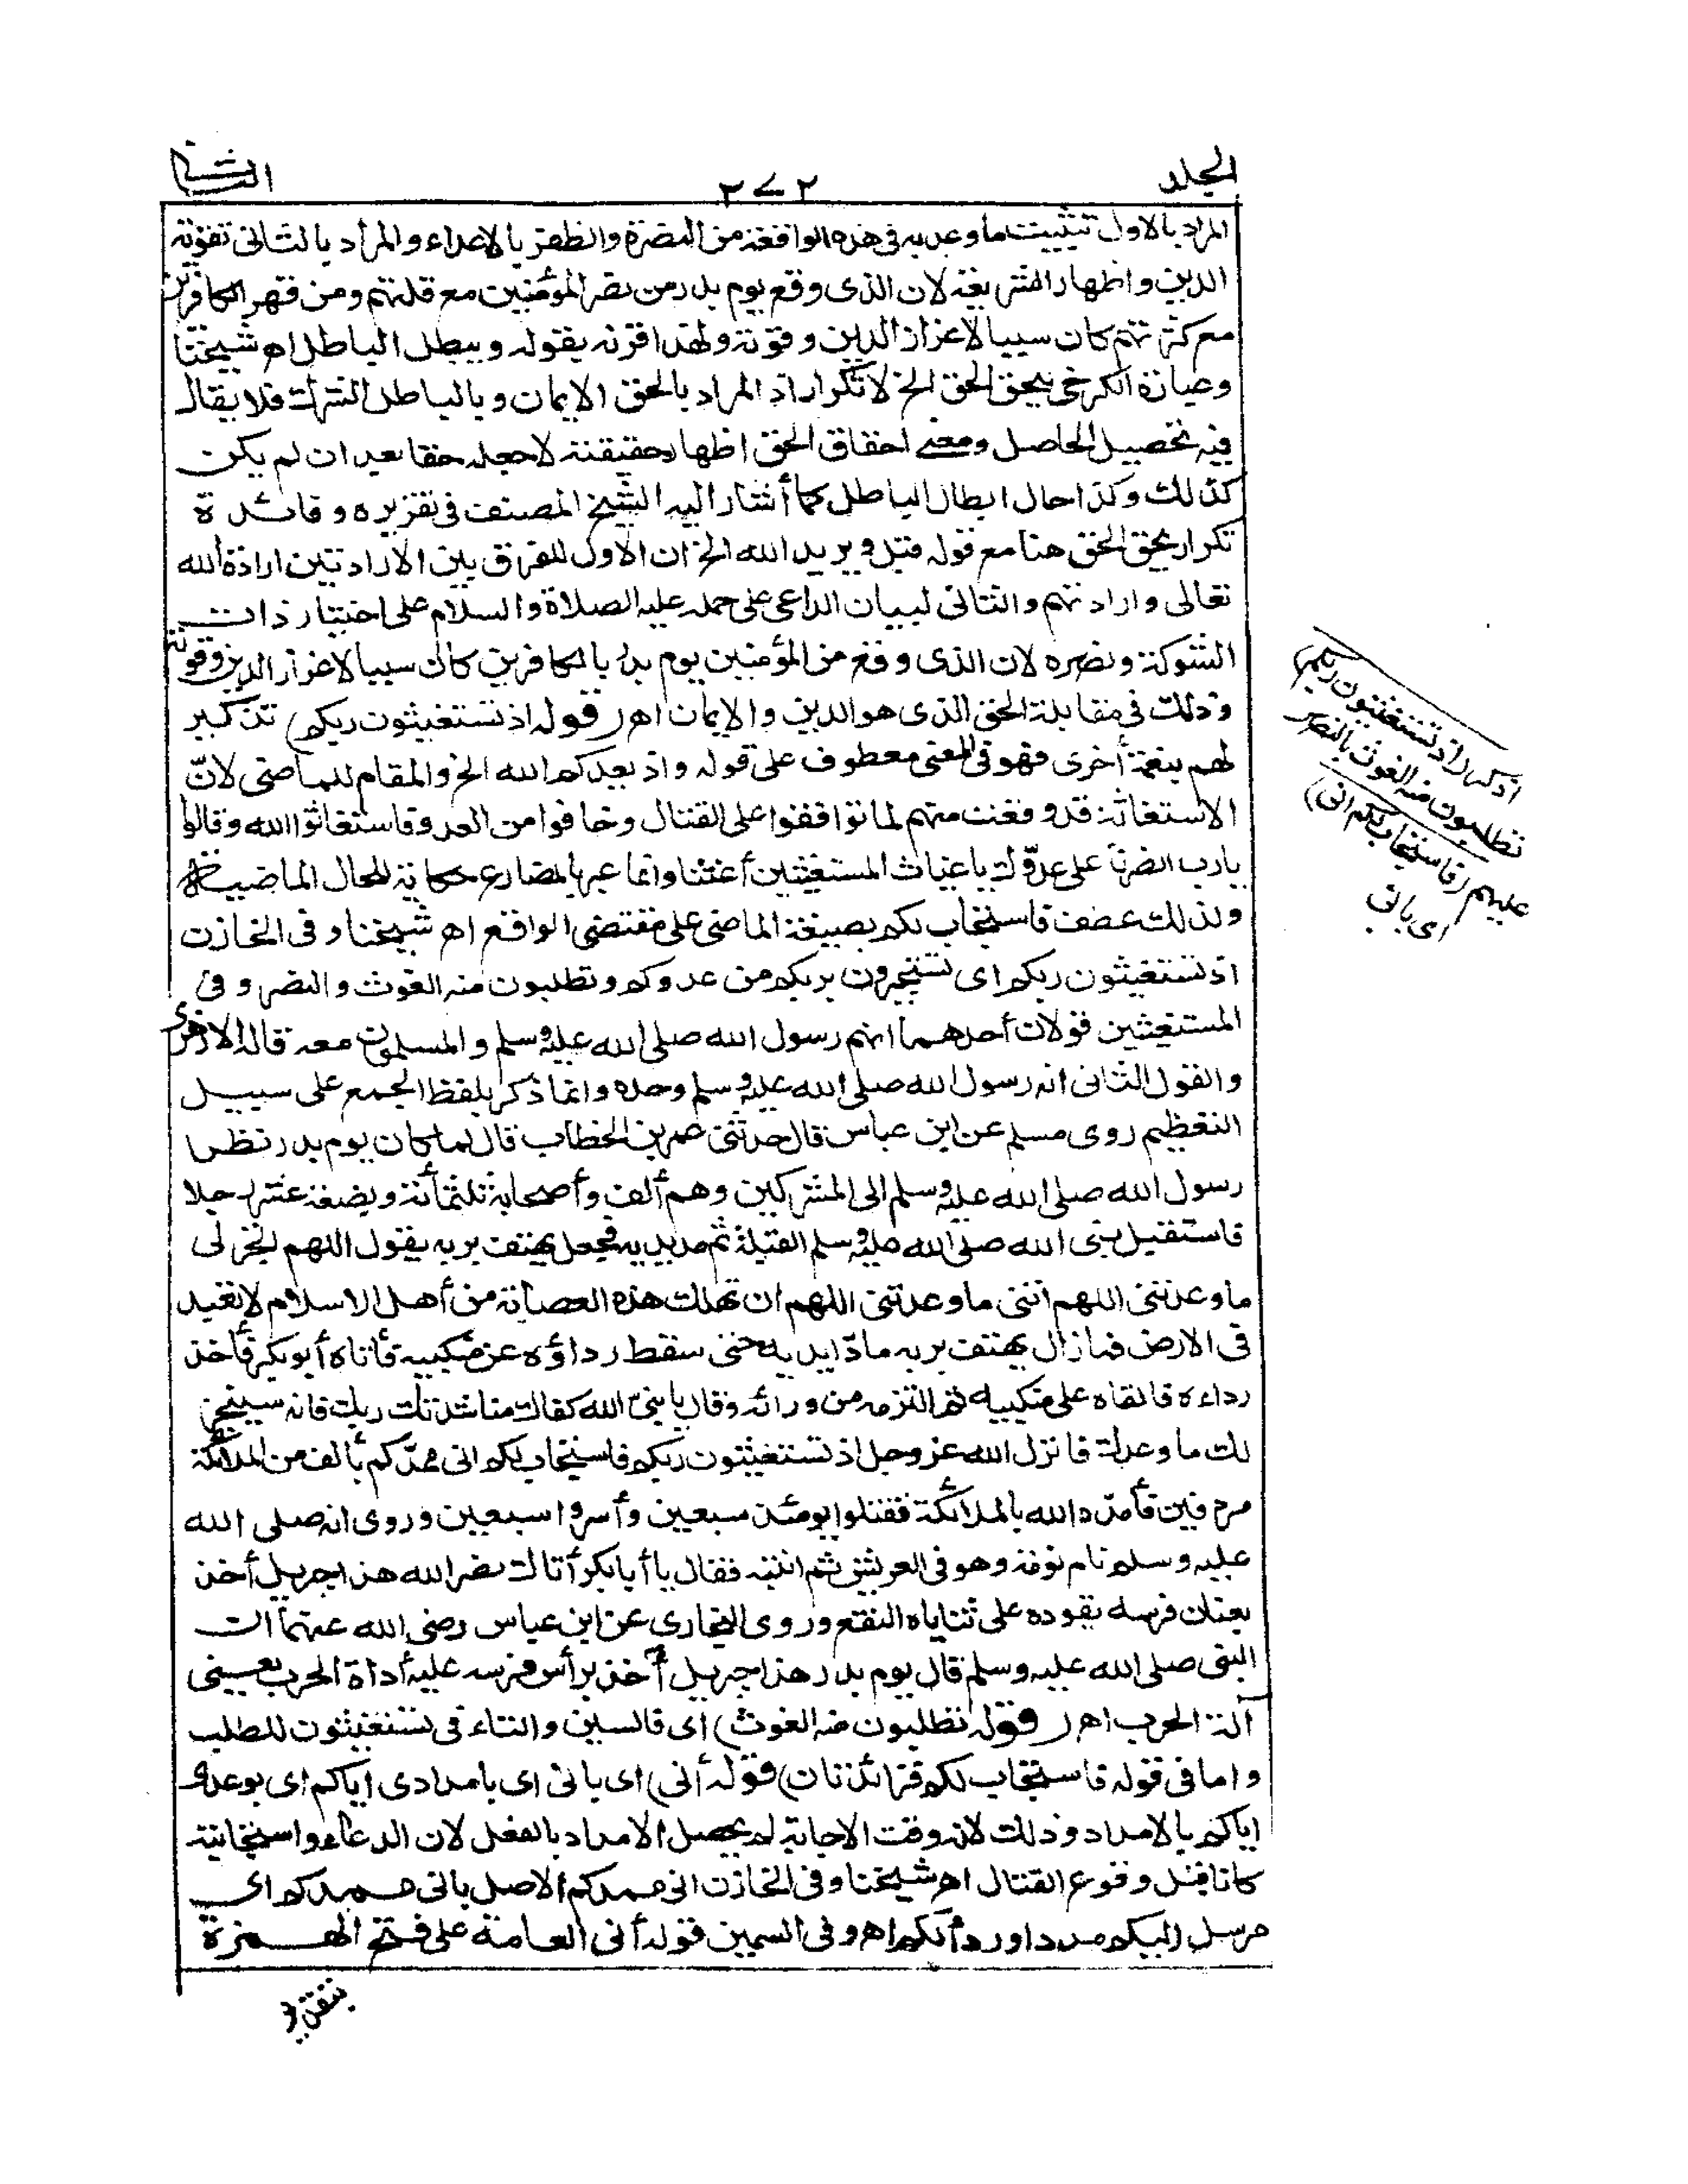 الجلد ٢٧٢ الثاني
المراد بالاول تثبيت ما وعد به في هذه الواقعة من النصرة والظفر بالاعداء والمراد بالثاني تقوية
الدين واظهار الشريعة لان الذى وقع يوم بدر من نصر المؤمنين مع قلتهم ومن قهر الكافرين
مع كثرتهم كان سببا لاعزاز الدين وقوته ولهذا قرنه بقوله ويبطل الباطل اه شيخنا
وعبارة الكرخى ليحق الحق الخ لا تكرار اذ المراد بالحق الايمان وبالباطل الشرك فلا يقال
فيه تحصيل الحاصل ومعنى احقاق الحق اظهار حقيقته لا جعله حقا بعد ان لم يكن
كذلك وكذا حال ابطال الباطل كما أشار اليه الشيخ المصنف في تقريره وفائدة
تكرار يحق الحق هنا مع قوله قبل ويريد الله الخ ان الاول للفرق بين الارادتين ارادة الله
تعالى وارادتهم والثانى لبيان الداعى على حمله عليه الصلاة والسلام على اختيار ذات
الشوكة ونصره لان الذى وقع من المؤمنين يوم بدر بالكافرين كان سببا لاعزاز الدين وقوته
وذلك في مقابلة الحق الذى هو الدين والايمان اهـ (قوله اذ تستغيثون ربكم) تذكير
لهم بنعمة أخرى فهو في المعنى معطوف على قوله واذ يعدكم الله الخ والمقام للماضى لان
الاستغاثة قد وقعت منهم لما توافقوا على القتال وخافوا من العدو فاستغاثوا الله وقالوا
يارب انصرنا على عدوك يا غياث المستغيثين أغثنا وانما عبر بالمضارع حكاية للحال الماضية
ولذلك عطف فاستجاب لكم بصيغة الماضى على مقتضى الواقع اهـ شيخنا وفى الخازن
اذ تستغيثون ربكم اى تستجيرون بربكم من عدوكم وتطلبون منه الغوث والنصر وفى
المستغيثين قولان أحدهما انهم رسول الله صلى الله عليه وسلم والمسلمون معه قاله الازهرى
والقول الثانى انه رسول الله صلى الله عليه وسلم وحده وانما ذكر بلفظ الجمع على سبيل
التعظيم روى مسلم عن ابن عباس قال حدثنى عمر بن الخطاب قال لما كان يوم بدر نظر
رسول الله صلى الله عليه وسلم الى المشركين وهم ألف وأصحابه ثلثمائة وبضعة عشر رجلا
فاستقبل نبى الله صلى الله عليه وسلم القبلة ثم مد يديه فجعل يهتف بربه يقول اللهم انجز لى
ما وعدتنى اللهم آتنى ما وعدتنى اللهم ان تهلك هذه العصابة من أهل الاسلام لا تعبد
فى الارض فما زال يهتف بربه مادا يديه حتى سقط رداؤه عن منكبيه فأتاه أبو بكر فأخذ
رداءه فالقاه على منكبيه ثم التزمه من ورائه وقال يا نبى الله كفاك مناشدتك ربك فانه سينجز
لك ما وعدك فانزل الله عز وجل اذ تستغيثون ربكم فاستجاب لكم انى ممدكم بألف من الملائكة
مردفين فأمده الله بالملائكة فقتلوا يومئذ سبعين وأسروا سبعين وروى انه صلى الله
عليه وسلم نام نومة وهو فى العريش ثم انتبه فقال يا أبا بكر أتاك نصر الله هذا جبريل أخذ
بعنان فرسه يقوده على ثناياه النقع وروى البخارى عن ابن عباس رضى الله عنهما ان
النبى صلى الله عليه وسلم قال يوم بدر هذا جبريل أخذ برأس فرسه عليه أداة الحرب يعنى
آلة الحرب اهـ (قوله تطلبون منه الغوث) اى فالسين والتاء فى تستغيثون للطلب
واما فى قوله فاستجاب لكم فزائدتان (قوله أنى) اى بانى اى بامدادى اياكم اى بوعدى
اياكم بالامداد وذلك لانه وقت الاجابة لم يحصل الامداد بالفعل لان الدعاء واستجابته
كانا قبل وقوع القتال اهـ شيخنا وفى الخازن انى ممدكم الاصل بانى ممدكم اى
مرسل اليكم مددا وردأ لكم اهـ وفى السمين قوله أنى العامة على فتح الهمزة
اذكر (اذ تستغيثون ربكم)
تطلبون منه الغوث بالنصر
عليهم (فاستجاب لكم انى)
اى بانى